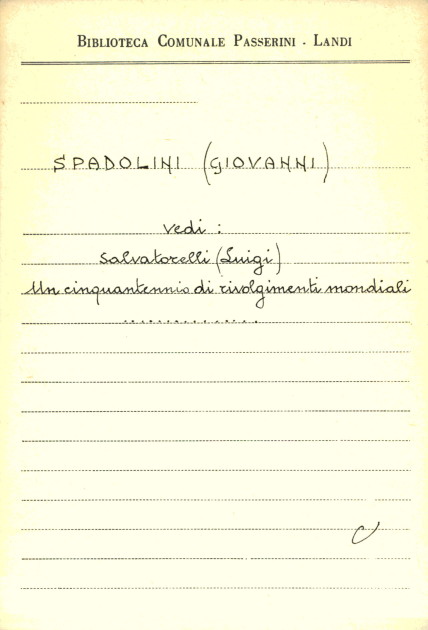 BIBLIOTECA COMUNALE PASSERINI - LANDI
SPADOLINI (GIOVANNI)
vedi :
Salvatorelli (Luigi)
Un cinquantennio di rivolgimenti mondiali
..............